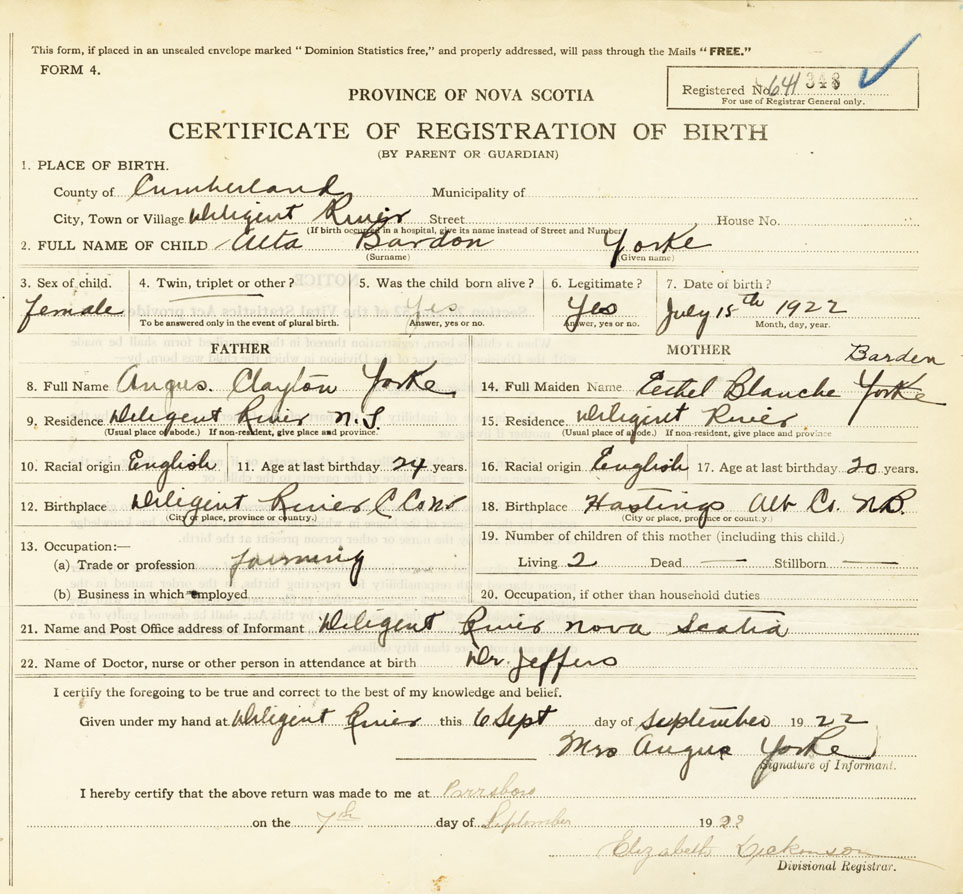 This form, if placed in an unsealed envelope marked "Dominion Statistics free," and properly addressed, will pass through the Mails "FREE."
FORM 4.
Registered No. 641 348
For use of Registrar General only.
PROVINCE OF NOVA SCOTIA
CERTIFICATE OF REGISTRATION OF BIRTH
(BY PARENT OR GUARDIAN)
1. PLACE OF BIRTH.
County of Cumberland Municipality of
City, Town or Village Diligent River Street House No.
(If birth occurred in a hospital, give its name instead of Street and Number
2. FULL NAME OF CHILD Alta Bardon Yorke
(Surname) (Given name)
3. Sex of child. 4. Twin, triplet or other? 5. Was the child born alive? 6. Legitimate? 7. Date of birth?
female Yes Yes July 15th 1922
To be answered only in the event of plural birth. Answer, yes or no. Answer, yes or no. Month, day, year.
FATHER MOTHER Barden
8. Full Name Angus. Clayton Yorke 14. Full Maiden Name Eethel Blanche Yorke
9. Residence Diligent River N.S. 15. Residence Diligint River
(Usual place of abode.) If non-resident, give place and province. (Usual place of abode.) If non-resident, give place and province
10. Racial origin English 11. Age at last birthday 24 years. 16. Racial origin English 17. Age at last birthday 20 years.
12. Birthplace Diligent River C Co NS 18. Birthplace Hastings Alb Co. N.B.
(City or place, province or country.) (City or place, province or country.)
13. Occupation:— 19. Number of children of this mother (including this child.)
(a) Trade or profession farming Living 2 Dead — Stillborn —
(b) Business in which employed 20. Occupation, if other than household duties
21. Name and Post Office address of Informant Diligent River Nova Scotia
22. Name of Doctor, nurse or other person in attendance at birth Dr. Jeffers
I certify the foregoing to be true and correct to the best of my knowledge and belief.
Given under my hand at Diligent River this 6 Sept day of September 1922
Mrs Angus Yorke
Signature of Informant.
I hereby certify that the above return was made to me at Parrsboro
on the 7th day of September 1922
Elizabeth Dickinson
Divisional Registrar.